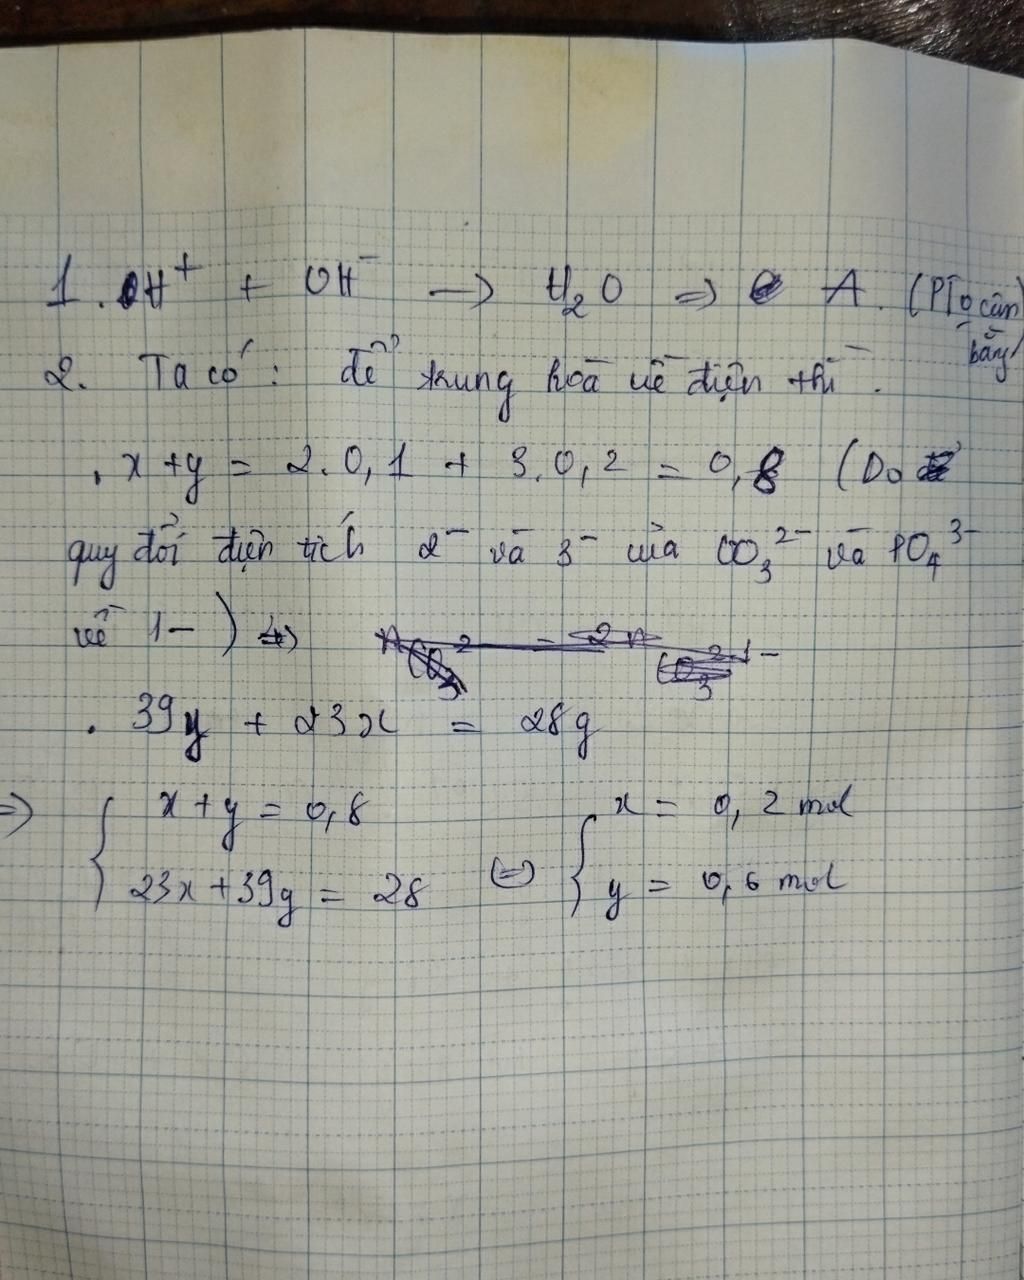 1. H⁺ + OH⁻ → H₂O ⇒ A. (PT đã cân bằng)
2. Ta có: để trung hoà về điện thì
. x + y = 2.0,1 + 3.0,2 = 0,8 (Do
quy đổi điện tích 2⁻ và 3⁻ của CO₃²⁻ và PO₄³⁻
về 1-)
. 39y + 23x = 28g
⇒ { x + y = 0,8
23x + 39y = 28 ⇔ { x = 0,2 mol
y = 0,6 mol